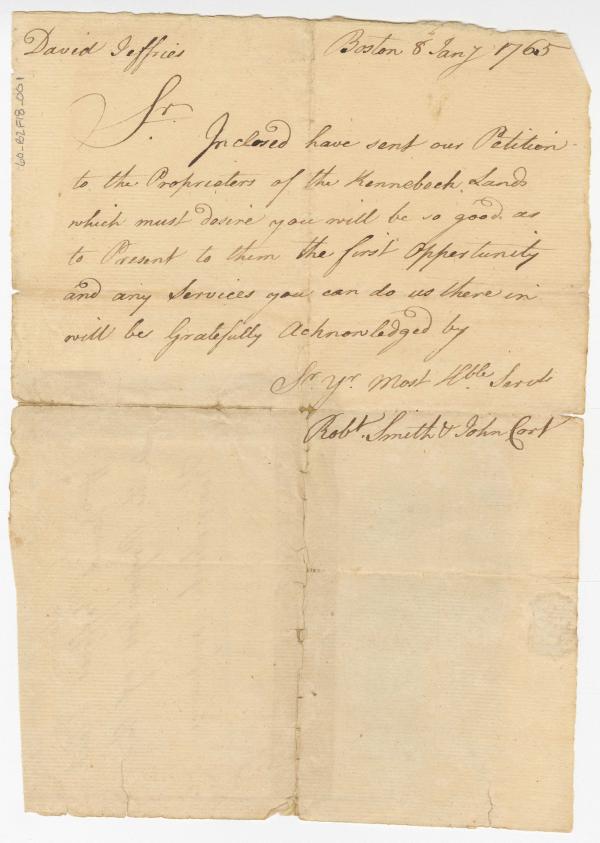 David Jeffries Boston 8 Jany 1765
Sr.
Inclosed have sent our Petition
to the Proprieters of the Kennebeck Lands
which must desire you will be so good as
to Present to them the first Opportunity
and any Services you can do us there in
will be Gratefully Acknowledged by
Sr. Yr. Most Hble Servts
Robt. Smith & John Cort
60-B2F18-001